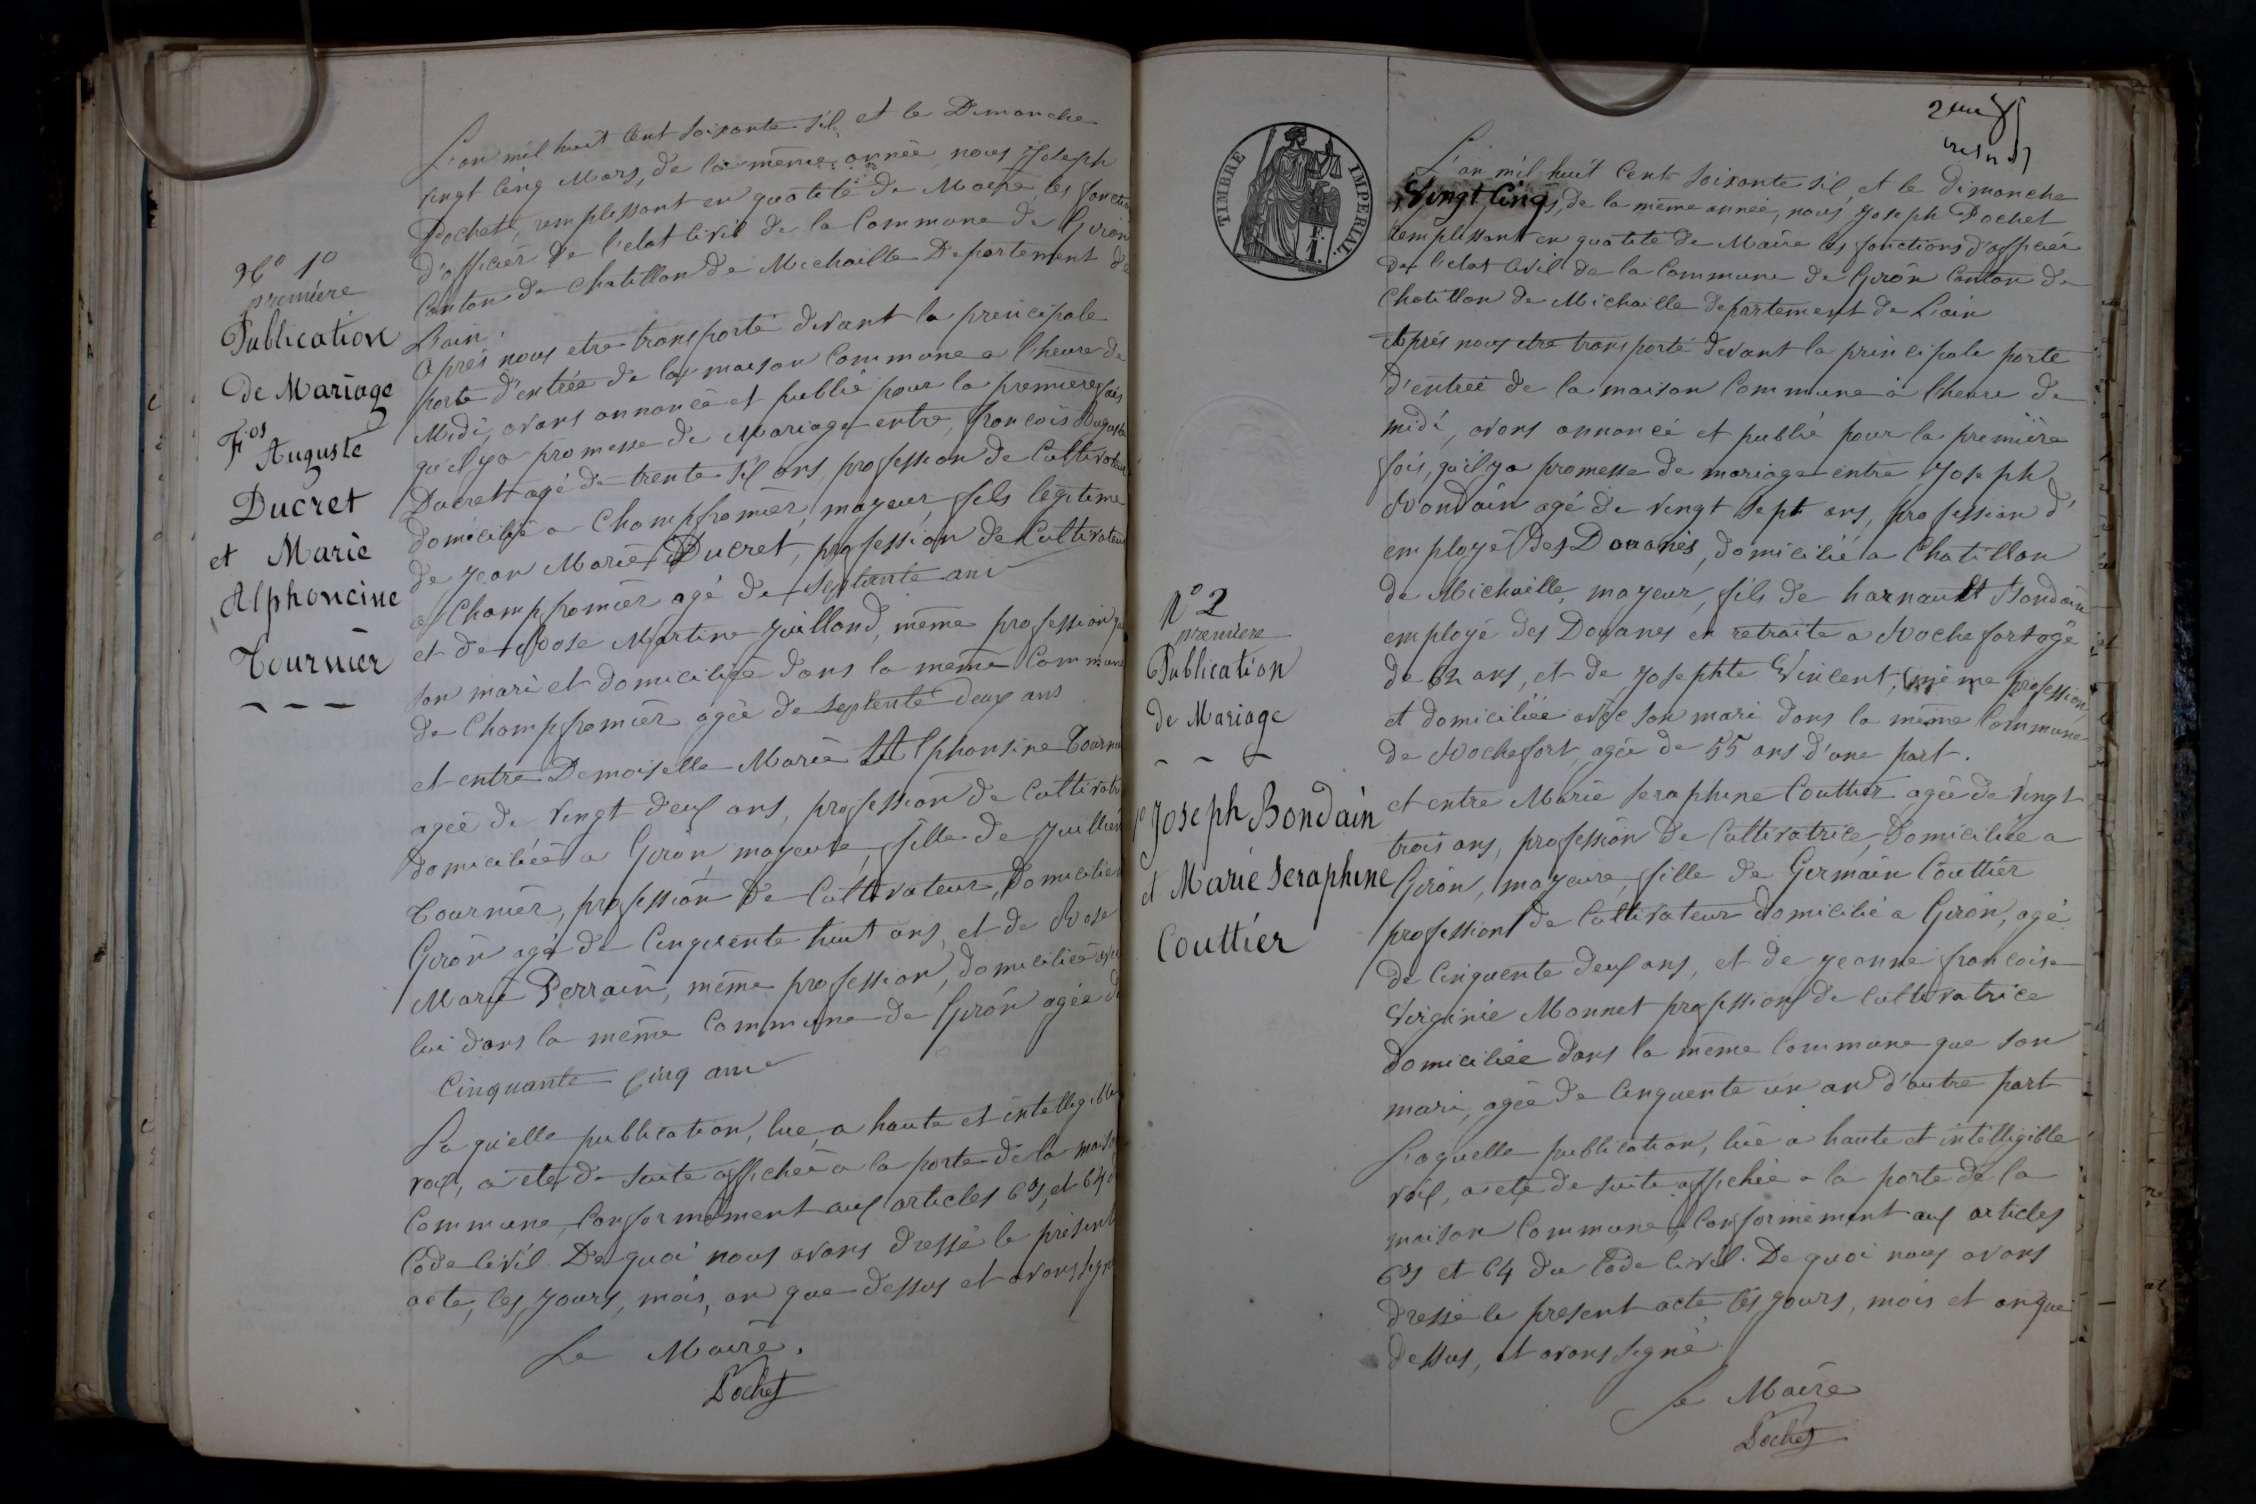 N° 1°
première
Publication
De Mariage
Fçs
Auguste
Ducret
et Marie
Alphoncine
Tournier
L'an mil huit Cent soixante six, et le Dimanche
vingt cinq Mars, de la même année, nous Joseph
Pochet, remplissant en qualité de Maire les fonctions
d'officier de l'etat Civil de la Commune de Giron
Canton de Chatillon de Michaille Departement de
L'ain.
Après nous etre transporté devant la principale
porte d'entrée de la maison Commune a l'heure de
Midi, avons annoncé et publié pour la première fois
qu'il y a promesse de Mariage entre, françois Auguste
Ducret agé de trente six ans, profession de Cultivateur
domicilié a Champfromier, mayeur, fils légitime
de Jean Marie Ducret, profession de Cultivateur
a Champfromier agé de septante ans
et de Rose Martine Juilland, même profession que
son mari et domiciliée dans la même Commune
de Champfromier agée de septente deux ans
et entre Demoiselle Marie Alphonsine Tournier
agée de vingt deux ans, profession de Cultivatrice
domiciliée a Giron, mayeure, fille de Juillien
Tournier, profession de Cultivateur, Domicilié
Giron agé de Cinquente huit ans, et de Rose
Marie Perrain, même profession, domiciliée avec
lui dans la même Commune de Giron agée de
Cinquante Cinq ans
La qu'elle publication, lue, a haute et intelligible
voix, a été de suite affichée a la porte de la maison
Commune, Conformément aux articles 63, et 64 du
Code Civil. De quoi nous avons dressé le présent
acte, les jours, mois, an que dessus et avons signé
Le Maire.
Pochet
TIMBRE IMPERIAL.
N° 2
première
Publication
De Mariage
Joseph Bondain
et Marie Seraphine
Couttier
L'an mil huit Cent soixante six, et le dimanche
Vingt Cinq, de la même année, nous Joseph Pochet
remplissant en qualité de Maire les fonctions d'officier
de l'etat Civil de la Commune de Giron Canton de
Chatillon de Michaille departement de L'ain
Après nous etre transporté devant la principale porte
d'entrée de la maison Commune à l'heure de
midi, avons annoncé et publié pour la première
fois, qu'il y a promesse de mariage entre Joseph
Bondain agé de vingt sept ans, profession d'
employé des Douanes, domicilié a Chatillon
de Michaille, mayeur, fils de harnault Bondain
employé des Douanes en retraite a Rochefort agé
de 62 ans, et de Josephte Vincent, même profession
et domiciliée avec son mari dans la même Commune
de Rochefort, agée de 55 ans d'une part.
et entre Marie seraphine Couttier agée de Vingt
trois ans, profession de Cultivatrice, domiciliée a
Giron, mayeure, fille de Germain Couttier
profession de Cultivateur domicilié a Giron, agé
de Cinquente deux ans, et de jeanne françoise
Virginie Monnet profession de cultivatrice
domiciliée dans la même Commune que son
mari, agée de Cinquente un an d'autre part
Laquelle publication, lue a haute et intelligible
voix, a été de suite affichée a la porte de la
maison Commune, Conformément aux articles
63 et 64 du Code Civil. De quoi nous avons
dressé le present acte les jours, mois et an que
dessus, et avons signé
Le Maire
Pochet